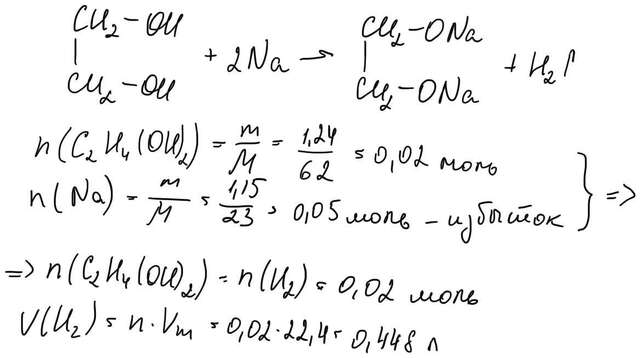 CH₂-OH CH₂-ONa
| + 2Na → | + H₂↑
CH₂-OH CH₂-ONa
n(C₂H₄(OH)₂) = m/M = 1,24/62 = 0,02 моль
n(Na) = m/M = 1,15/23 = 0,05 моль - избыток } =>
=> n(C₂H₄(OH)₂) = n(H₂) = 0,02 моль
V(H₂) = n·Vm = 0,02·22,4 = 0,448 л